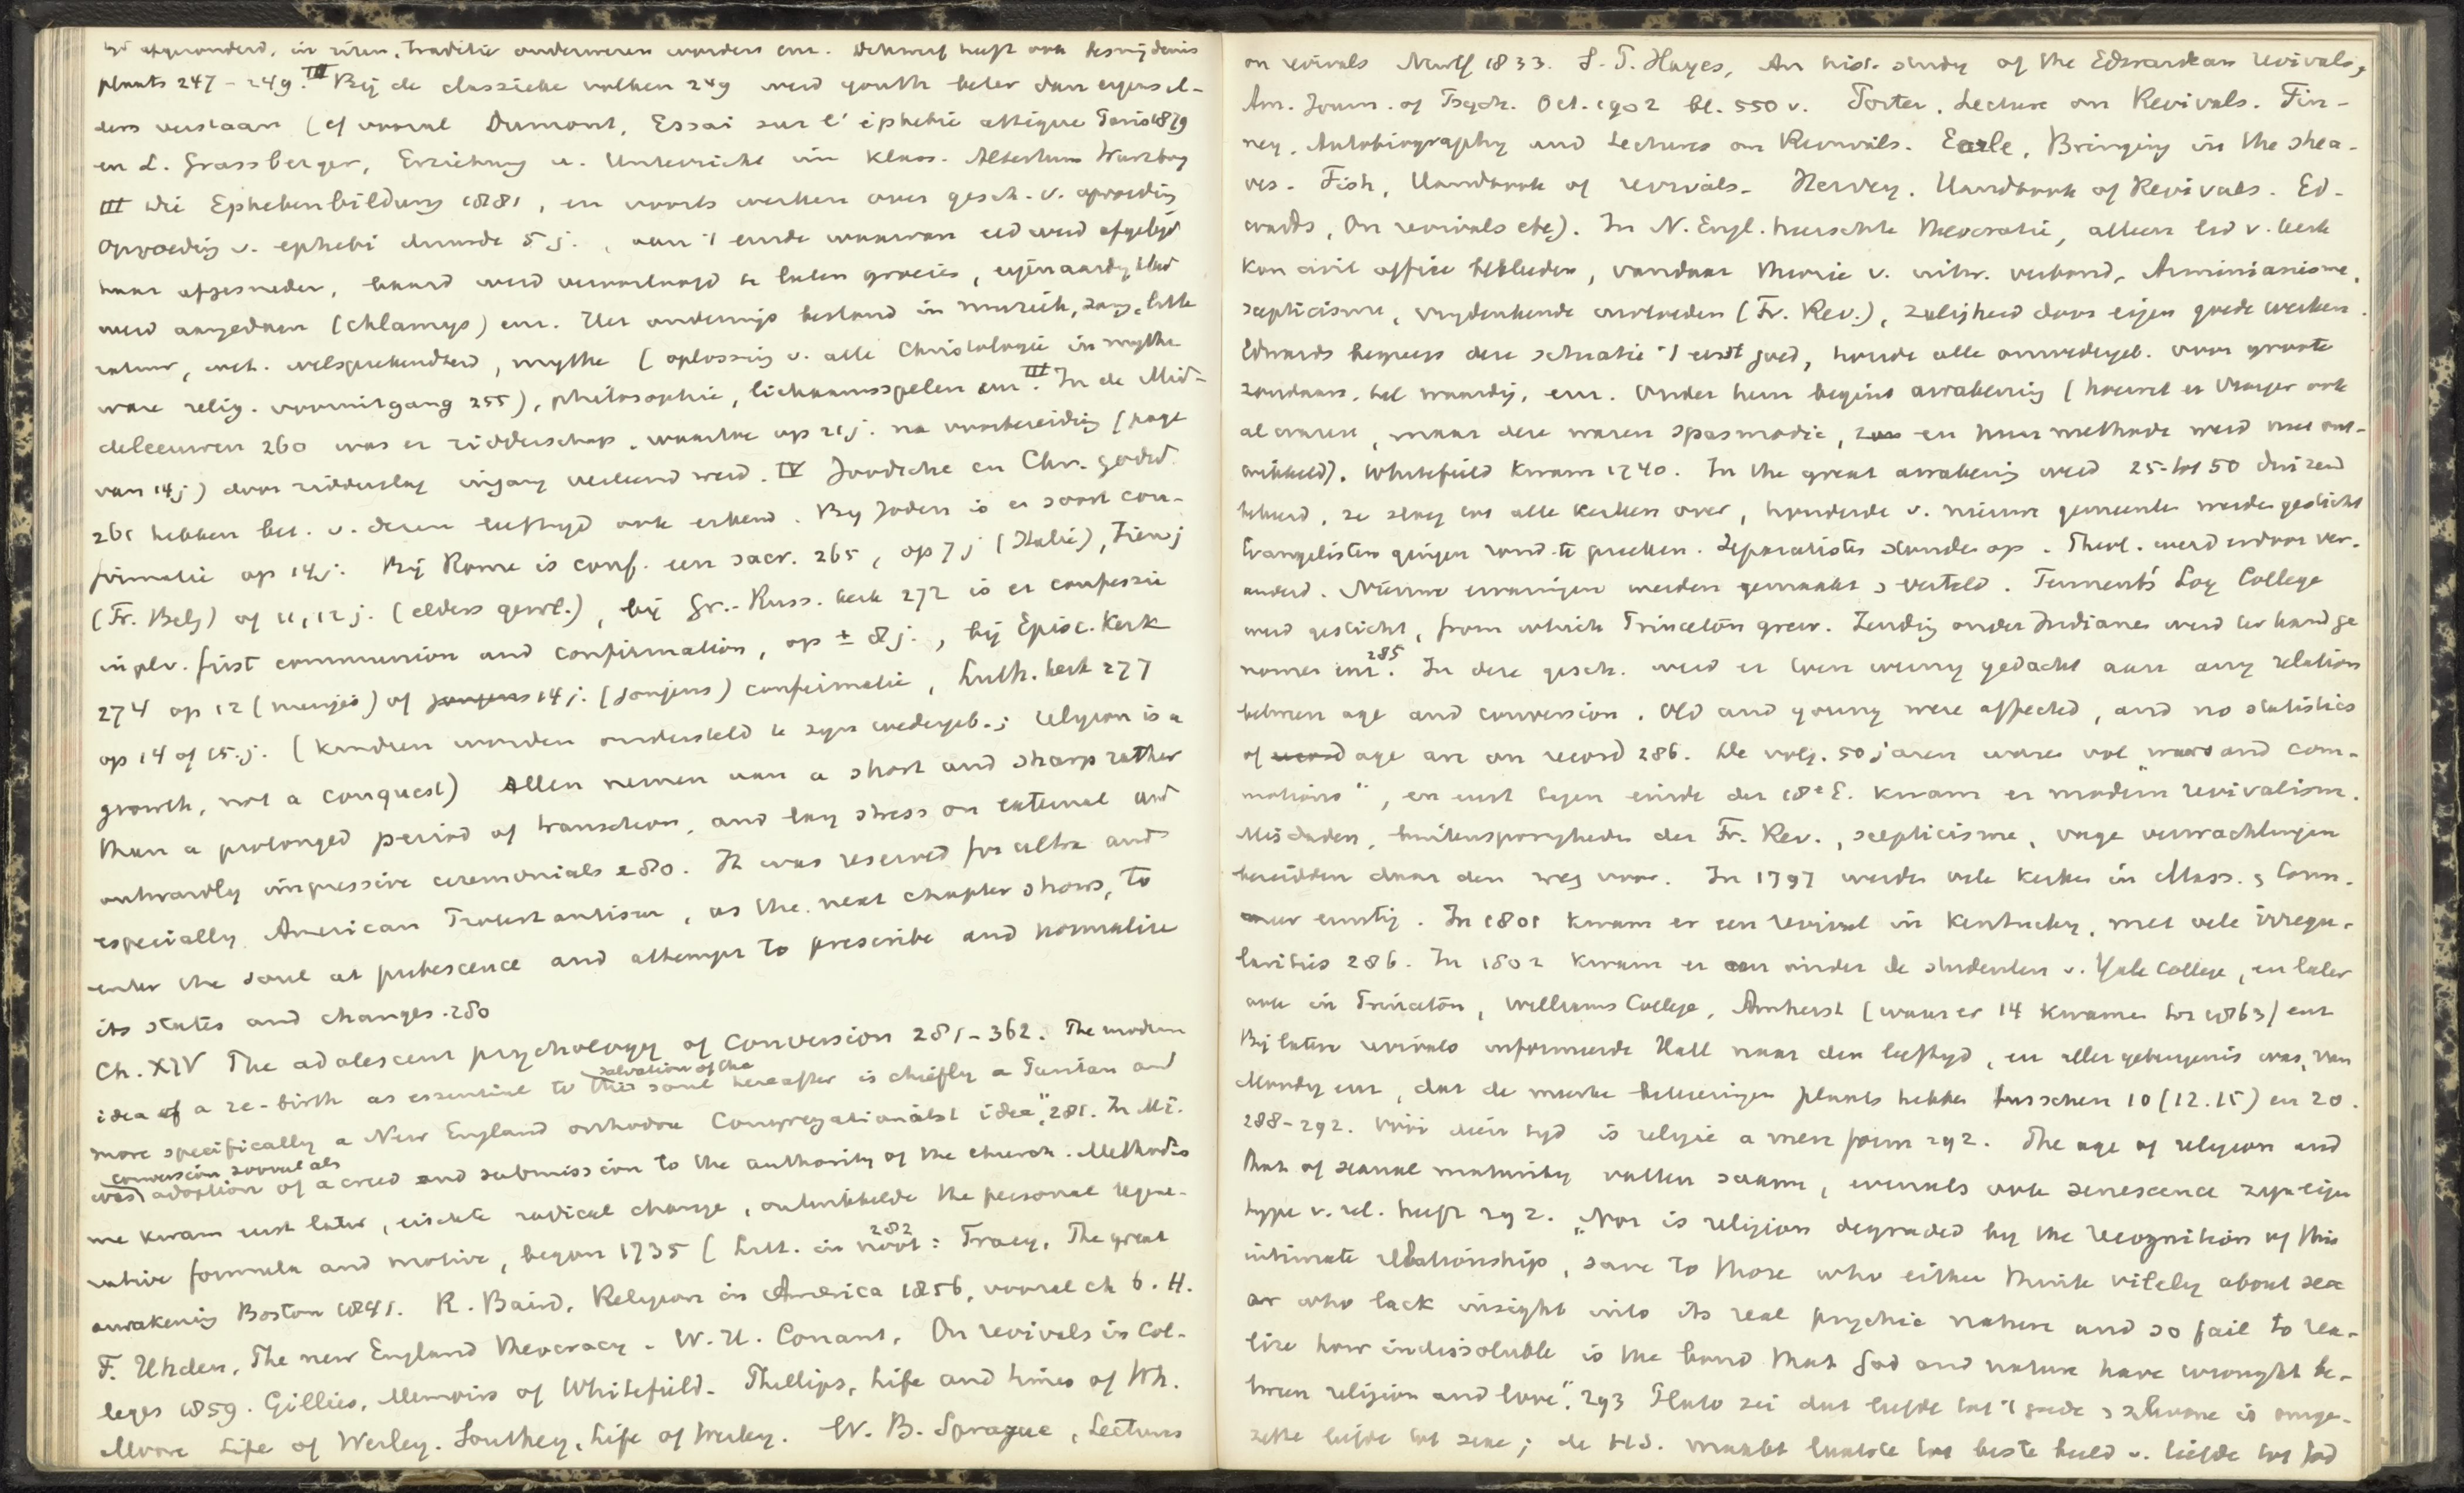 afgezonderd, in riten, traditie onderwezen worden enz. Daarna heeft ook besnijdenis
plaats 247-249. III Bij de classieke volken 249 werd youth beter dan ergens el-
ders verstaan (cf vooral Dumont, Essai sur l'éphébie attique Paris 1879
en L. Grassberger, Erziehung u. Unterricht im klass. Altertum Wurzburg
III Die Ephebenbildung 1881, en voorts werken over gesch. v. opvoeding
Opvoeding v. ephebi duurde 5 j., aan 't einde waarvan eed werd afgelegd
haar afgesneden, baard werd veroorloofd te laten groeien, eigenaardig kleed
werd aangedaan (chlamys) enz. Het onderwijs bestond in muziek, zang, litte
ratuur, wet. welsprekendheid, mythe (oplossing v. alle Christologie in mythe
ware relig. vooruitgang 255), philosophie, lichaamsspelen enz. III In de Mid-
deleeuwen 260 was er ridderschap, waartoe op 21 j. na voorbereiding (page
van 14 j) door ridderslag ingang verleend werd. IV Joodsche en Chr. godsd.
261 hebben bet. v. dezen leeftijd ook erkend. Bij Joden is er soort con-
firmatie op 14 j. Bij Rome is conf. een sacr. 265, op 7 j (Italië), 7 j
(Fr. Belg) of 11, 12 j. (elders gewl.), bij Gr.-Russ. kerk 272 is er confessie
in plv. first communion and confirmation, op ± 8 j., bij Episc. Kerk
274 op 12 (meisjes) of jongens 14 j. (jongens) confirmatie, Luth. kerk 277
op 14 of 15 j. (kindren worden ondersteld te zijn wedergeb.; religion is a
growth, not a conquest) Allen nemen aan a short and sharp rather
than a prolonged period of transition, and lay stress on external and
outwardly impressive ceremonials 280. It was reserved for ultra and
especially American Protestantism, as the next chapter shows, to
enter the soul at pubescence and attempt to prescribe and normalize
its states and changes. 280
Ch. XIV The adolescent psychology of Conversion 281-362. The modern
idea of a re-birth as essential to this salvation of the soul hereafter is chiefly a Puritan and
more specifically a New England orthodox Congregationalist idea", 281. In M.E.
was conversion vooral als adoption of a creed and submission to the authority of the church. Methodis
me kwam eerst later, eischte radical change, ontwikkelde the personal regene-
rative formula and motive, began 1735 (Litt. in noot 282: Tracy, The great
awakening Boston 1841. R. Baird, Religion in America 1856, vooral ch 6. H.
F. Uhden, The new England theocracy. W. H. Conant, On revivals in Col-
leges 1859. Gillies, Memoirs of Whitefield. Phillips, Life and times of Wh.
Moore Life of Wesley. Southey, Life of Wesley. W. B. Sprague, Lectures
on revivals NewY 1833. S. P. Hayes, An hist. study of the Edwardean revivals,
Am. Journ. of Psych. Oct. 1902 bl. 550 v. Porter, Lecture on Revivals. Fin-
ney, Autobiography and Lectures on Revivals. Earle, Bringing in the shea-
ves. Fish, Handbook of revivals. Hervey, Handbook of Revivals. Ed-
wards, On revivals etc). In N. Engl. heerschte theocratie, alleen lid v. kerk
kon civil office bekleeden, vandaar theorie v. uitw. verbond, Arminianisme,
scepticisme, vrijdenkende invloeden (Fr. Rev.), zaligheid door eigen goede werken.
Edwards begreep deze situatie 't eerst goed, houdt alle onwedergeb. voor groote
zondaars, hel waardig, enz. Onder hem begint awakening (hoewel er vroeger ook
al waren, maar deze waren spasmodic, en hun methode werd niet ont-
wikkeld). Whitefield kwam 1740. In the great awakening werd 25- tot 50 duizend
bekeerd, ze sloeg tot alle kerken over, honderde v. nieuwe gemeenten werden gesticht
Evangelisten gingen rond te preeken. Separatisten stonden op. Theol. werd erdoor ver-
anderd. Nieuwe ervaringen werden gemaakt & verteld. Tennents' Log College
werd gesticht, from which Princeton grew. Zending onder Indianen werd ter hand ge
nomen enz. 285 In deze gesch. werd er toen weinig gedacht aan any relation
between age and conversion. Old and young were affected, and no statistics
of age are on record 286. De volg. 50 jaren waren vol "wars and com-
motions", en eerst tegen einde der 18e E. kwam er modern revivalism.
Misdaden, buitensporigheden der Fr. Rev., scepticisme, vage verwachtingen
bereidden daar den weg voor. In 1797 werden vele kerken in Mass. & Conn.
zeer ernstig. In 1801 kwam er een revival in Kentucky, met vele irregu-
larities 286. In 1802 kwam er een onder de studenten v. Yale College, en later
ook in Princeton, Williams College, Amherst (waar er 14 kwamen tot 1863) enz
Bij latere revivals informeerde Hall naar den leeftijd, en aller getuigenis was, van
Moody enz, dat de meeste bekeeringen plaats hebben tusschen 10 (12.15) en 20.
288-292. Vóór dien tyd is religie a mere form 292. The age of religion and
that of sexual maturity vallen saam, evenals ook senescence zyn eigen
type v. rel. heeft 292. "Nor is religion degraded by the recognition of this
intimate relationship, save to those who either think vilely about sex
or who lack insight into its real psychic nature and so fail to rea-
lize how indissoluble is the bond that God and nature have wrought be-
tween religion and love". 293 Plato zei dat liefde tot 't goede & schoone is omge-
zette liefde tot sexe; de H.S. maakt laatste tot beste beeld v. liefde tot God